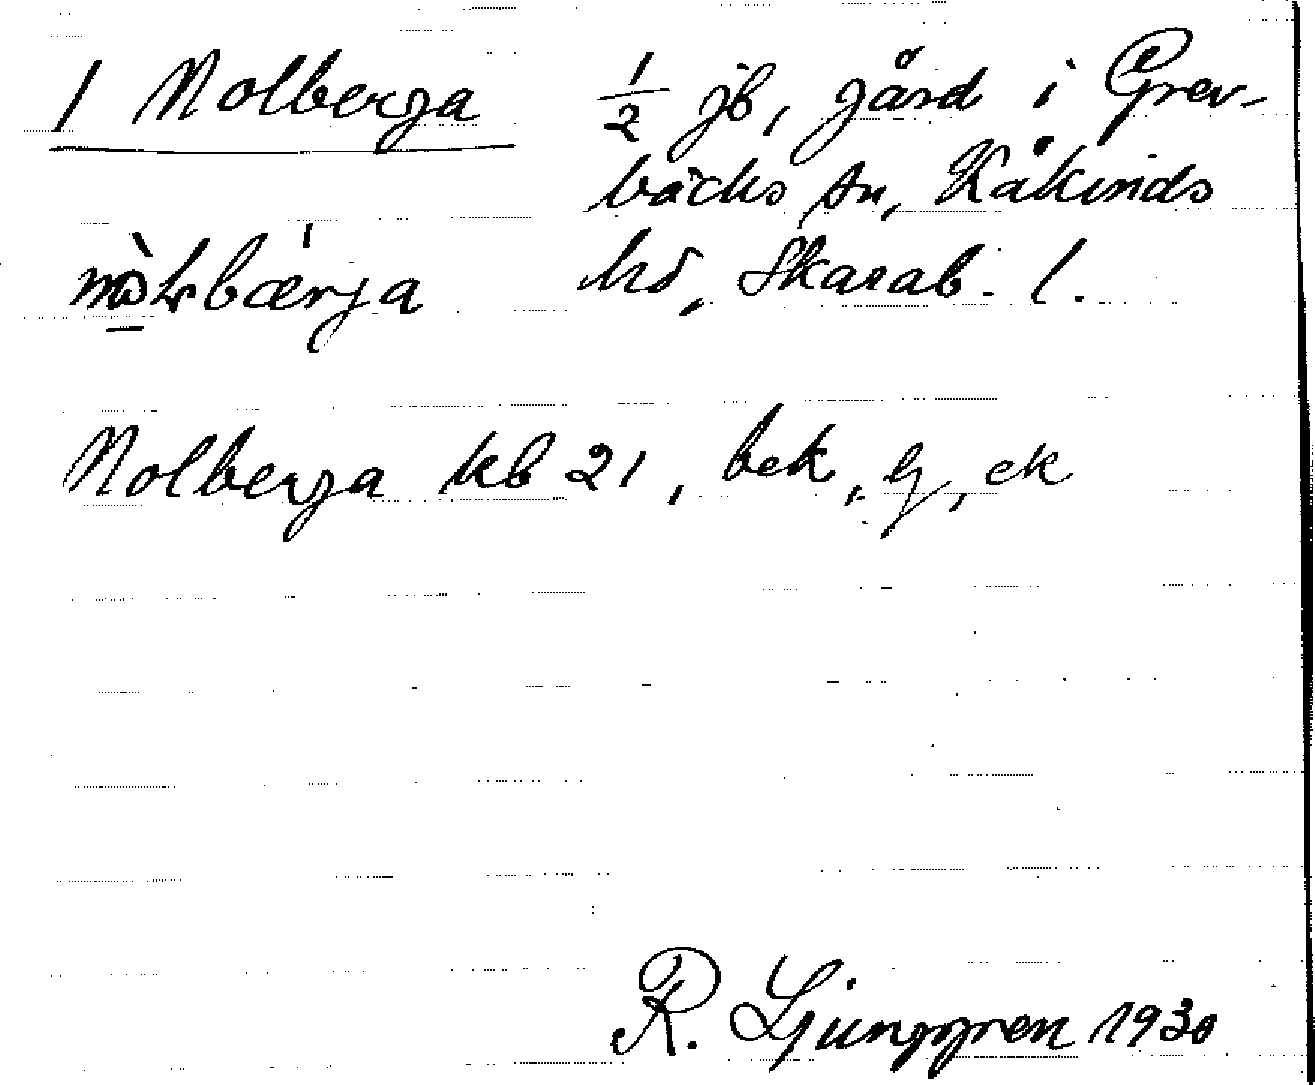 1 Nolberga 1/2 jb, gård i Grev-
bäcks sn, Kåkinds
hd, Skarab. l.
Nolberga kb 21, bek, g, ek
R. Ljunggren 1930